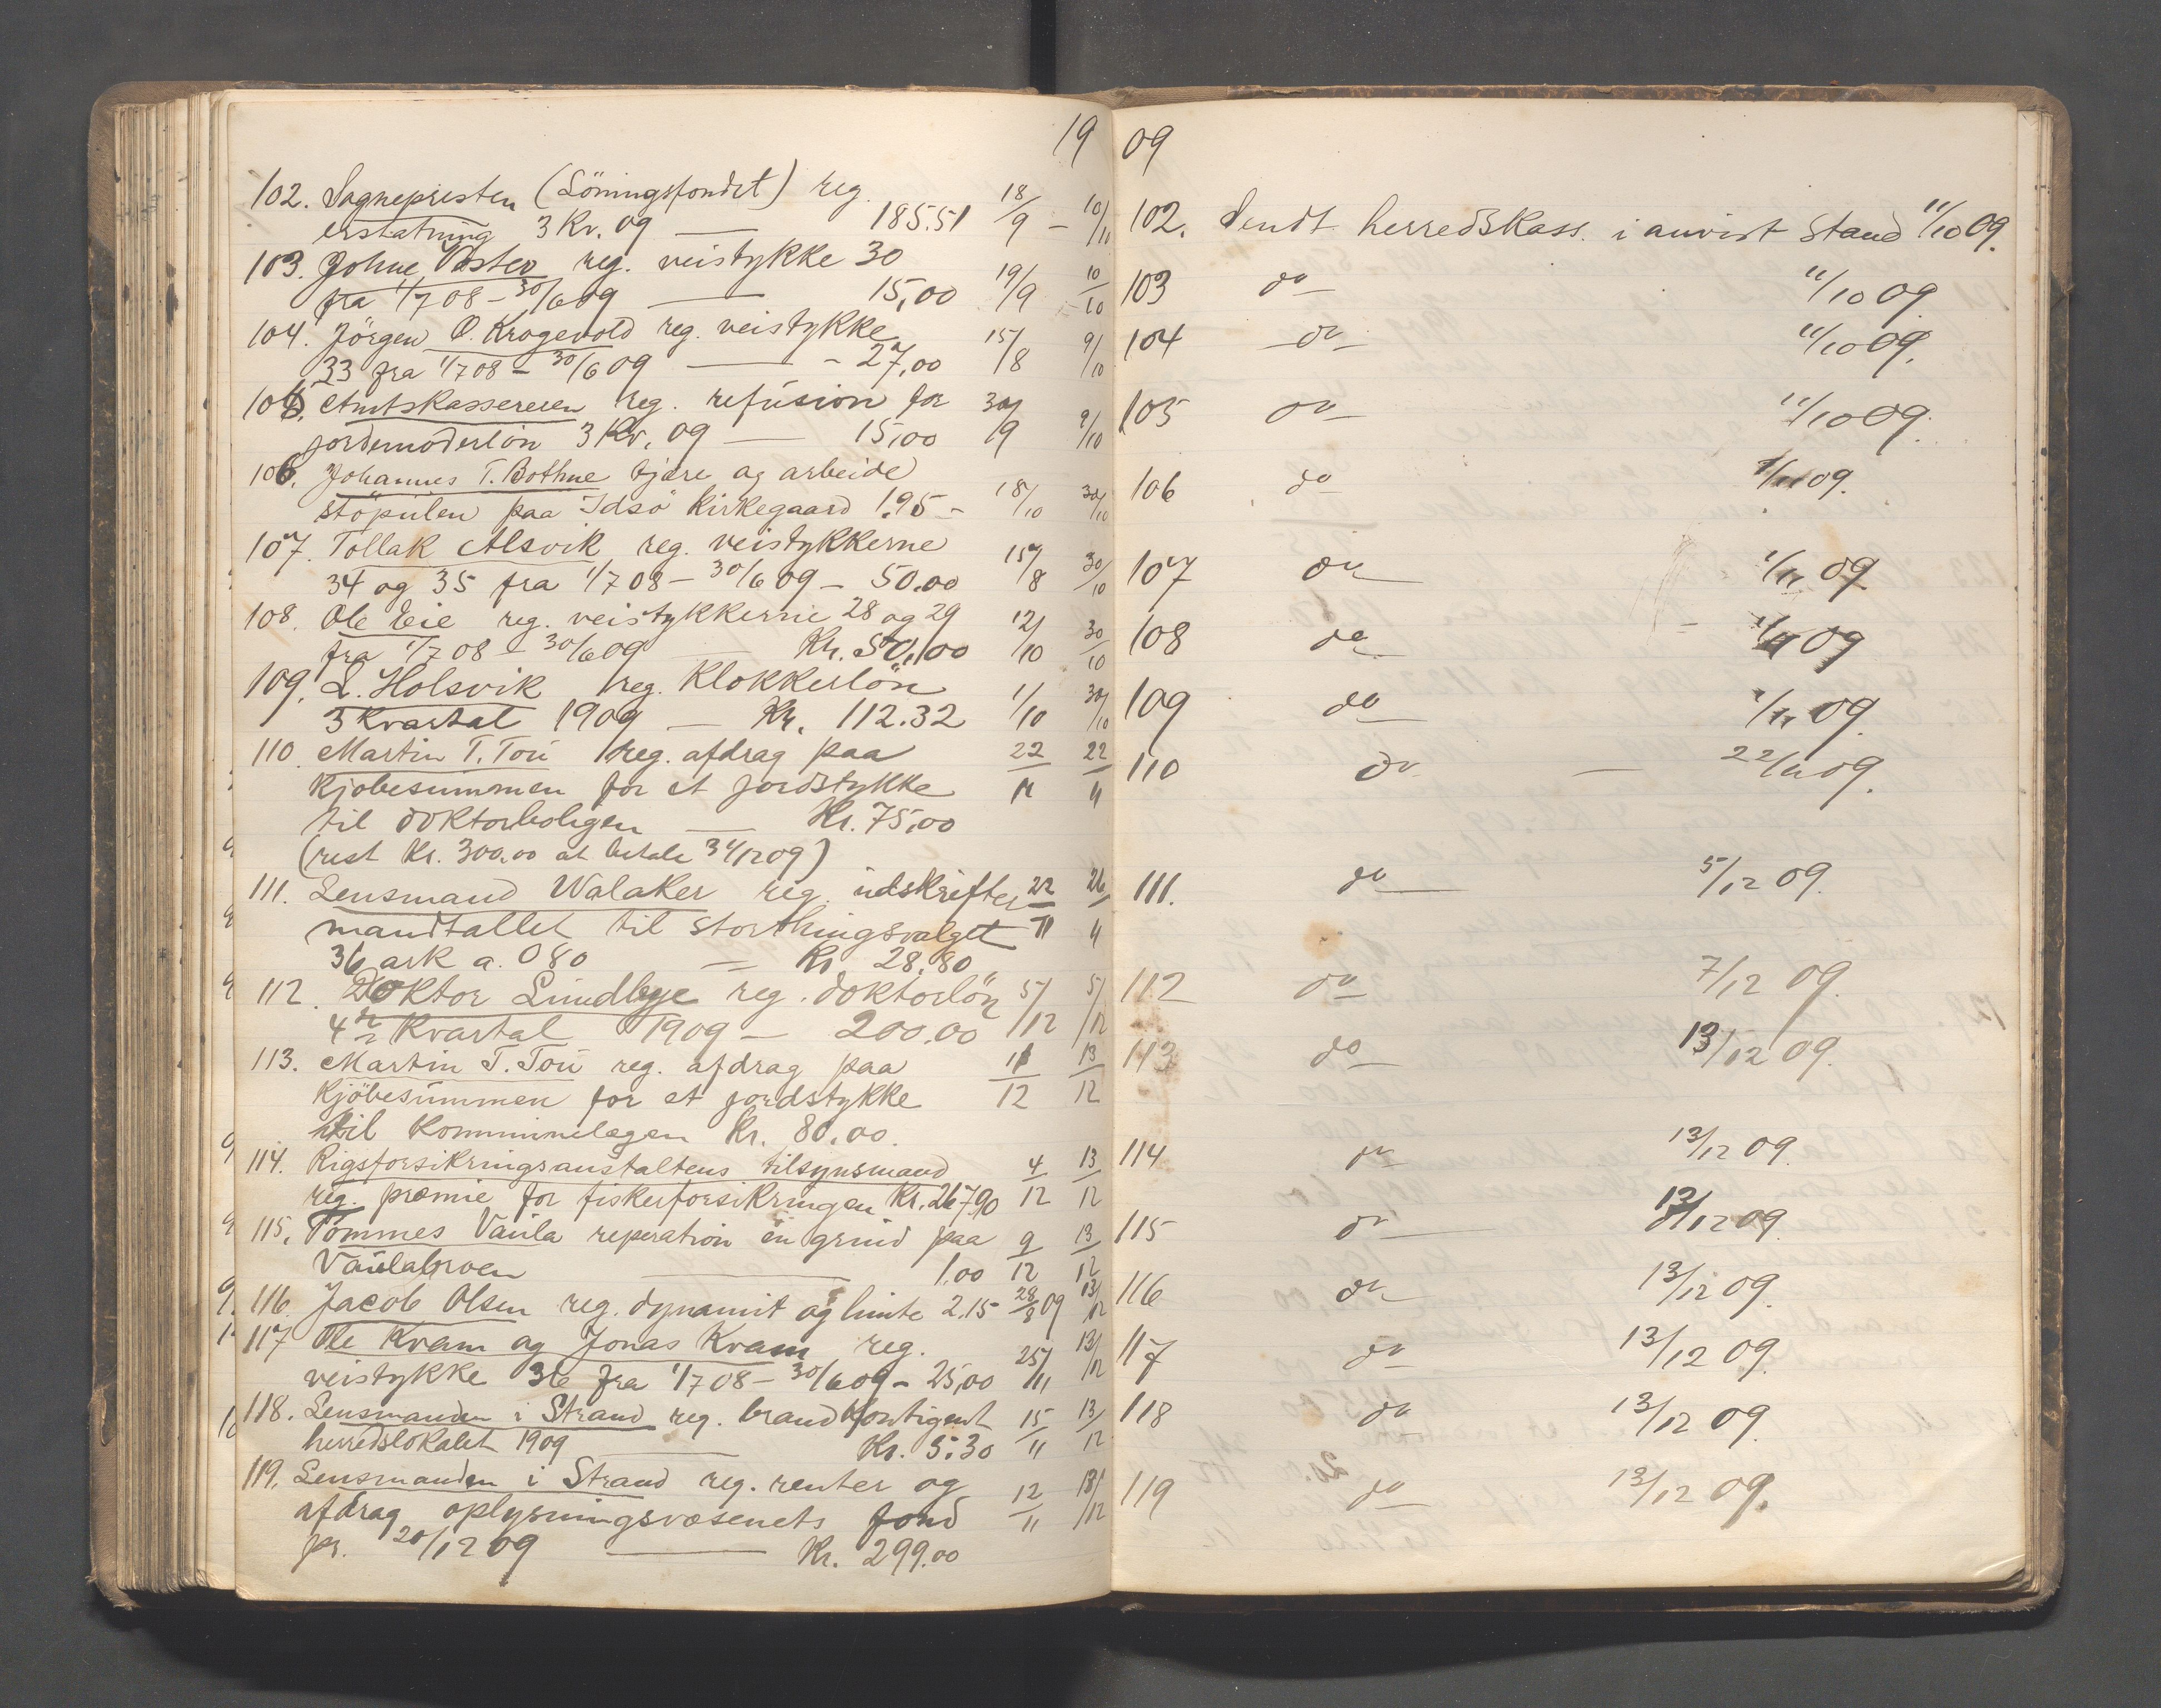 19
102. Sognepresten (Löningsfondet) reg. 18/9 - 10/10
erstatning 3 Kv. 09 — 185.51
103. Johne Vostev reg. veistykke 30
fra 1/7 08 - 30/6 09 — 15,00 19/9 10/10
104. Jörgen O. Kragevold reg. veistykke
33 fra 1/7 08 - 30/6 09 — - 27,00 15/8 9/10
105. Amtskassereren reg. refusion for 30/9 9/10
jordemoderlön 3 Kv. 09 — 15,00
106. Johannes T. Bothne tjære og arbeide
stöpulen paa Idsö Kirkegaard 1.95 - 18/10 30/10
107. Tollak Alsvik reg. veistykkerne
34 og 35 fra 1/7 08 - 30/6 09 - 50.00 15/8 30/10
108. Ole Eie reg. veistykkerne 28 og 29
fra 1/7 08 - 30/6 09 — Kr. 50,00 12/10 30/10
109. L. Holsvik reg. Klokkerlön
3 Kvartal 1909 — Kr. 112.32 1/10 30/10
110. Martin T. Tou reg. afdrag paa 22/11 22/11
Kjöbesummen for et jordstykke
til doktorboligen — Kr. 75,00
(rest Kr. 300.00 at betale 31/12 09)
111. Lensmand Walaker reg. udskrifter 22/11 26/11
mandtallet til storthingsvalget
36 ark a. 0 80 — Kr 28.80
112. Doktor Lundbye reg. doktorlön 5/12 5/12
4de Kvartal 1909 — 200.00
113. Martin T. Tou reg. afdrag paa 11/12 13/12
Kjöbesummen for et jordstykke
til Kommunelægen Kr. 80,00.
114. Rigsforsikringsanstaltens tilsynsmand 4/12 13/12
reg. præmie for fiskerforsikringen Kr. 267.90
115. Tommes Vaula reperation en grind paa 9/12 13/12
Vaulabroen — 1.00
116. Jacob Olsen reg. dynamit og lunte 2.15 28/8 09 13/12
117 Ole Kvam og Jonas Kvam reg.
veistykke 36 fra 1/7 08 - 30/6 09 - 25,00 25/11 13/12
118. Lensmanden i Strand reg. brandkontigent 15/11 13/12
herredslokalet 1909 — Kr. 5.30
119. Lensmanden i Strand reg. renter og
afdrag oplysningsvæsenets fond 12/11 13/12
pr. 20/12 09 — Kr. 299.00
09
102. Sendt herredskass. i anvist stand 11/10 09.
103 do 11/10 09
104 do 11/10 09.
105 do 11/10 09.
106 do 1/11 09.
107 do 1/11 09
108 do 1/11 09
109 do 1/11 09
110 do — 22/11 09.
111. do 5/12 09.
112 do 7/12 09.
113 do 13/12 09.
114 do 13/12 09.
115 do 13/12 09.
116 do 13/12 09.
117 do 13/12 09.
118 do 13/12 09.
119 do 13/12 09.